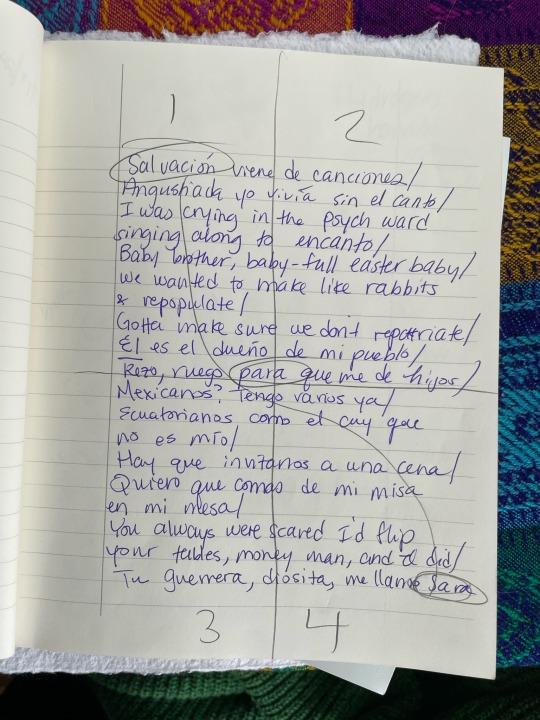 1
2
Salvación viene de canciones/
Angustiada yo vivía sin el canto/
I was crying in the psych ward
singing along to encanto/
Baby brother, baby-full easter baby/
we wanted to make like rabbits
& repopulate/
Gotta make sure we don't repatriate/
Él es el dueño de mi pueblo/
Rezo, ruego para que me de hijos/
Mexicanos? Tengo varios ya/
Ecuatorianos como el cuy que
no es mío/
Hay que invitarnos a una cena/
Quiero que comas de mi misa
en mi mesa/
You always were scared I'd flip
your tables, money man, and I did/
Tu guerrera, diosita, me llamo Sara
3
4